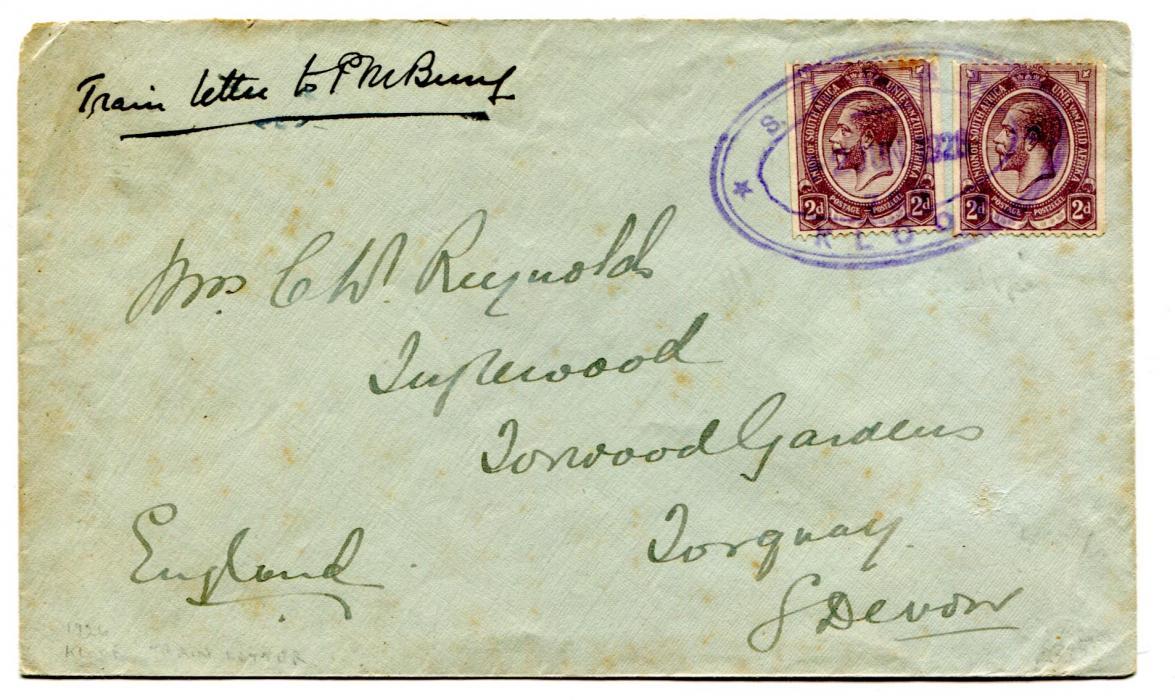 Train letter to PMBurg
S
UNION OF SOUTH AFRICA UNIE VAN ZUID AFRIKA
POSTAGE POSTZEGEL
2d 2d
UNION OF SOUTH AFRICA UNIE VAN ZUID AFRIKA
POSTAGE POSTZEGEL
2d 2d
KLOO
Mrs C W Reynolds
Inglewood
Torwood Gardens
Torquay.
S Devon
England
1926
TRAIN LETTER